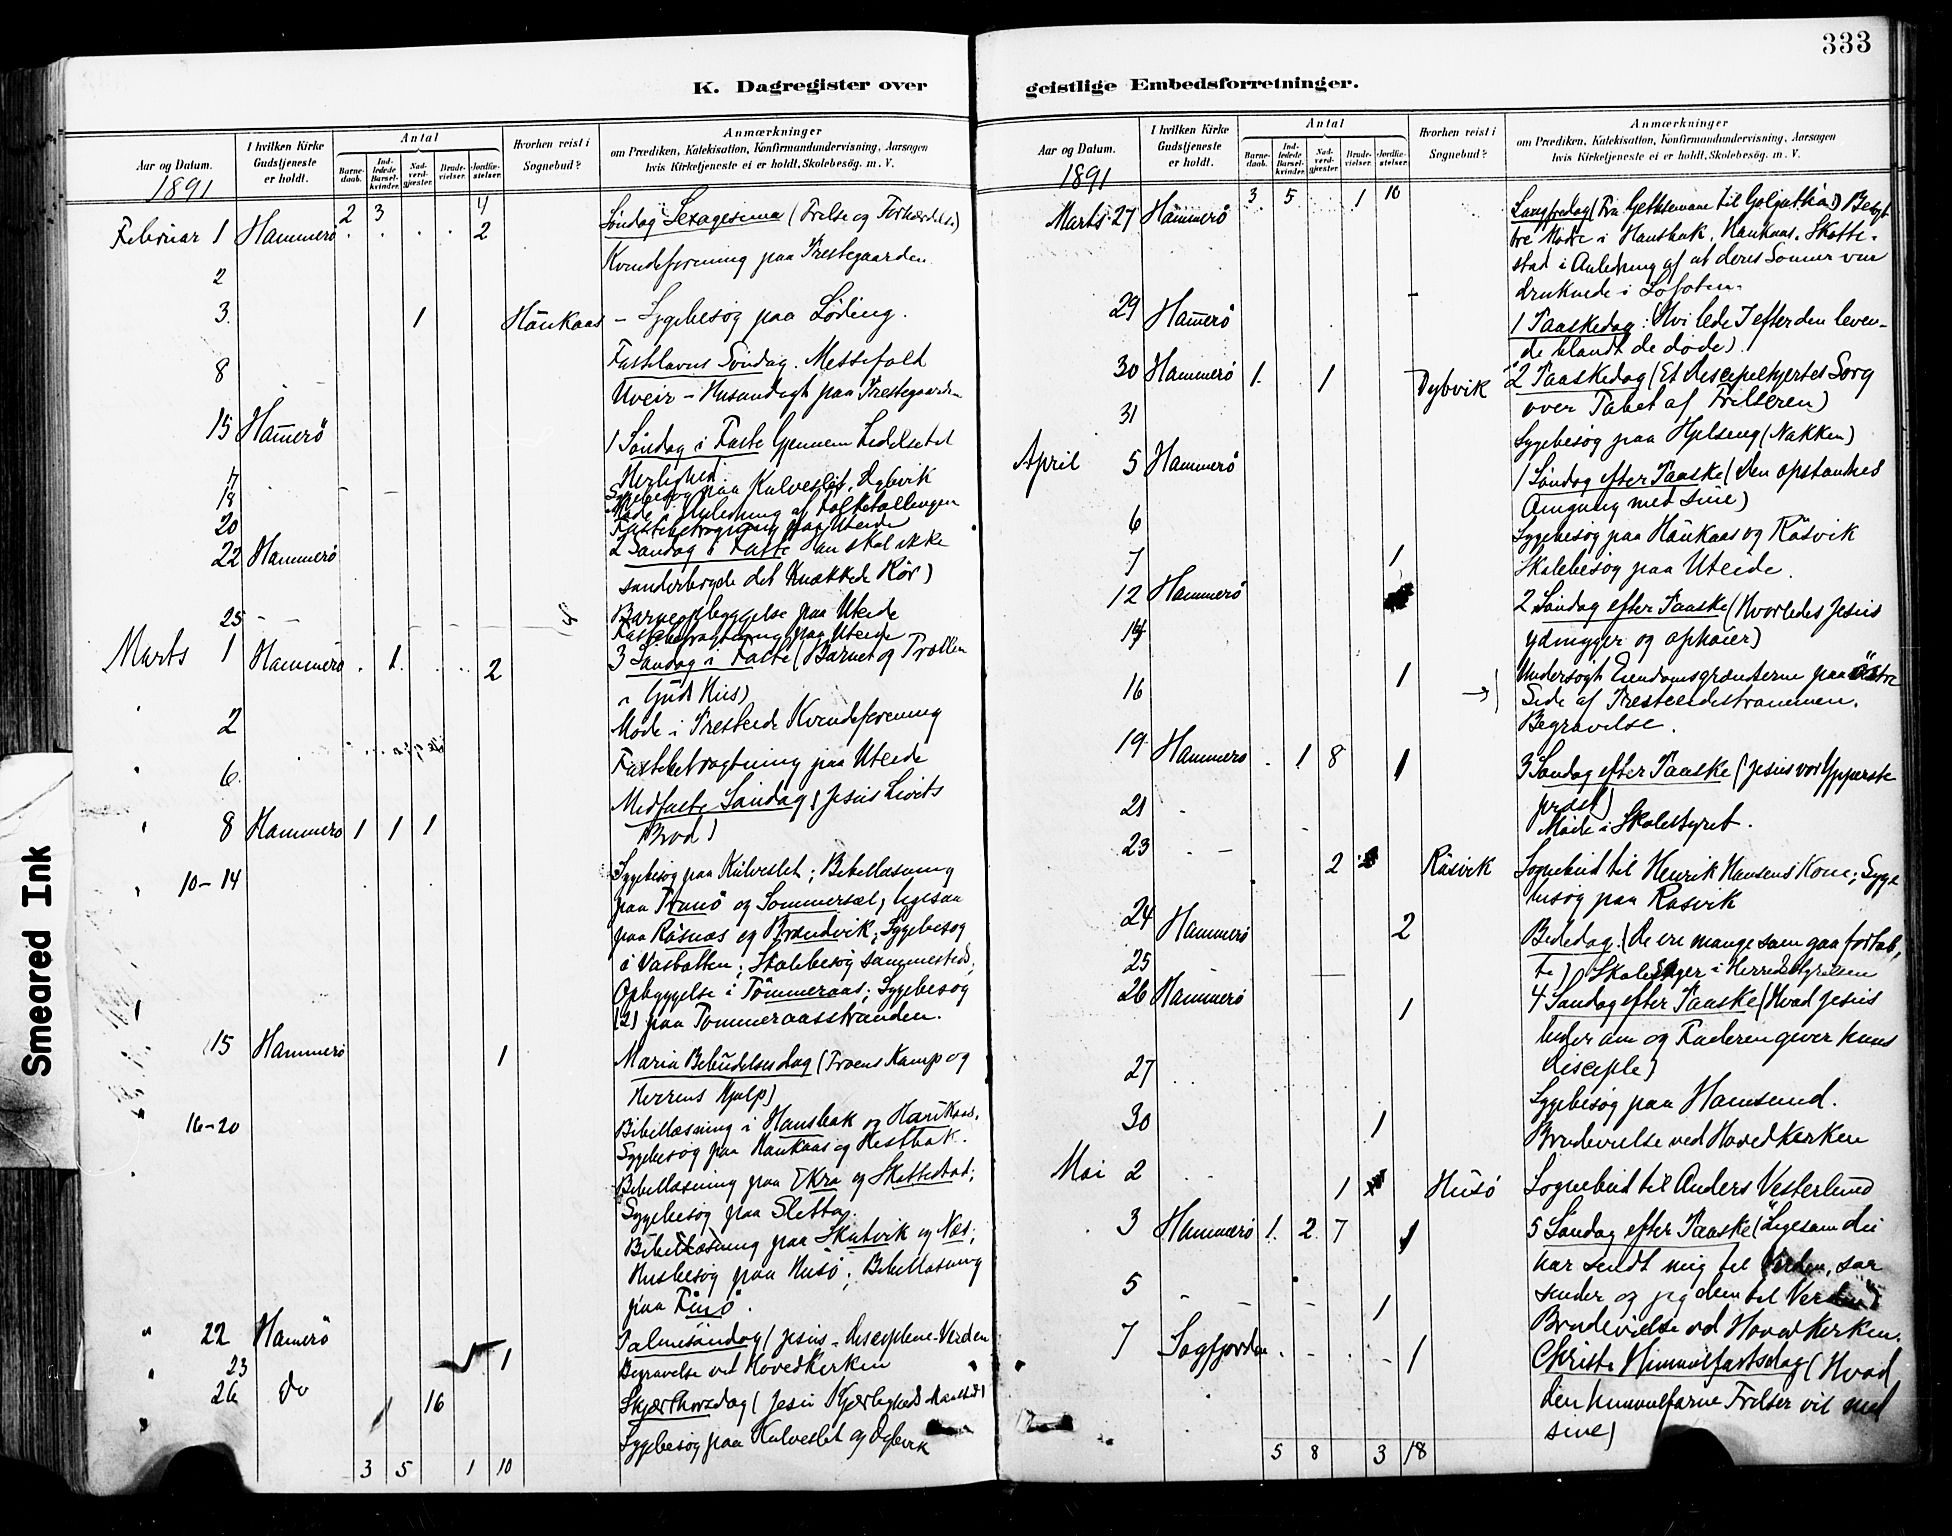 333
K. Dagregister over
geistlige Embedsforretninger.
Aar og Datum.
1891
I hvilken Kirke Gudstjeneste er holdt.
Antal
Barnedaab.
Indledede Barselkvinder.
Nadverdgjæster.
Brudevielser.
Jordfæstelser.
Hvorhen reist i Sognebud?
Anmærkninger
om Prædiken, Katekisation, Konfirmandundervisning, Aarsagen
hvis Kirketjeneste ei er holdt, Skolebesøg. m. V.
2 3 4
Februar 1 Hammerö 2 Søndag Sexagesima (Frelse og Forhærdelse)
2 Kvindeforening paa Prestegaarden
3. 1 Haukaas – Sygebesøg paa Løding.
8 Fastelavns Søndag. Messefald
Uveir – Husandagt paa Prestegaarden
15 Hamerö 1 Søndag i Faste Gjennem Lidelse til
Herlighed
17 Sygebesøg paa Kalveslet, Dybvik
18 Møde i Anledning af Folketællingen
20 Fastebetragtning paa Uteide
22 Hammerö 2 Søndag i Faste Han skal ikke
sønderbryde det Knækkede Rør)
25 Barneopbyggelse paa Uteide
Fastebetragtning paa Uteide
Marts 1 Hammerö 1 2 3 Søndag i Faste (Barnet og Trællen
i Guds Hus)
2 Møde i Presteide Kvindeforening
6 Fastebetragtning paa Uteide
Midfaste Søndag (Jesus Livets
8 Hammerö 1 1 1 Brød)
10–14 Sygebesøg paa Kalveslet; Bibellæsning
paa Tranö og Sommersæl, ligesaa
paa Råsnæs og Brændvik; Sygebesøg
i Vasbotten; Skolebesøg sammesteds;
Opbyggelse i Tömmeraas; Sygebesøg
(2) paa Tömmeraasstranden.
15 Hammerö 1 Maria Bebudelsesdag (Troens Kamp og
Herrens Hjælp)
16–20 Bibellæsning i Hansbak og Haukaas.
Sygebesøg paa Haukaas og Hestbak.
Bibellæsning paa Ekra og Skottestad;
Sygebesøg paa Sletta.
Bibellæsning paa Skutvik og Næs;
Husbesøg paa Husö; Bibellæsning
paa Finö.
22 Hamerö Palmesøndag (Jesus – Disciplene – Verden
23 1 Begravelse ved Hovedkirken
26 do 1 16 Skjærthorsdag (Jesu Kjærligheds Maaltid)
Sygebesøg paa Kalveslet og Dybvik
3 5 1 10
Aar og Datum.
1891
I hvilken Kirke Gudstjeneste er holdt.
Antal
Barnedaab.
Indledede Barselkvinder.
Nadverdgjæster.
Brudevielser.
Jordfæstelser.
Hvorhen reist i Sognebud?
Anmærkninger
om Prædiken, Katekisation, Konfirmandundervisning, Aarsagen
hvis Kirketjeneste ei er holdt, Skolebesøg. m. V.
3 5 1 10
Marts 27 Hammerö Langfredag (Fra Gethsemane til Golgatha) Besøgt
tre Mødre i Hansbak, Haukaas, Skotte-
stad i Anledning af at deres Sønner var
druknede i Lofoten.
29 Hamerö 1 Paaskedag: Hvi lede I efter den leven-
de blandt de døde)
30 Hammerö 1 1 Dybvik 2 Paaskedag (Et Discipelhjertes Sorg
over Tabet af Frelseren)
31 Sygebesøg paa Helseng (Nakken)
April 5 Hammerö 1 Søndag efter Paaske (Den opstandnes
Omgang med sine)
6 Sygebesøg paa Haukaas og Råsvik
7 1 Skolebesøg paa Uteide.
12 Hammerö 2 Søndag efter Paaske (Hvorledes Jesus
ydmyger og ophøier)
14 Undersøgt Eiendomsgrændserne paa östre
16 1 Side af Presteeidestrømmen.
Begravelse.
19 Hammerö 1 8 1 3 Søndag efter Paaske (Jesus vor Ypperste
prest)
21 Møde i Skolestyret.
23 2 Råsvik Sognebud til Henrik Hansens Kone; Syge
besøg paa Råsvik
24 Hammerö 2 Bededag. (De ere mange som gaa fortab-
25 te) Skolesager i Herredsstyrelsen
26 Hammerö 1 4 Søndag efter Paaske (Hvad Jesus
beder om og Faderen giver hans
Disciple)
27 Sygebesøg paa Hamsund.
30 1 Brudevielse ved Hovedkirken
Mai 2 1 Husö Sognebud til Anders Vesterlund
3 Hammerö 1 2 7 1 5 Søndag efter Paaske ("Ligesom du
har sendt mig til Verden, saa
5 1 sender og jeg dem til Verden")
Brudevielse ved Hovedkirken.
7 Sagfjorden 1 Christi Himmelfartsdag (Hvad
den himmelfarne Frelser vil med
sine)
5 8 3 18
Smeared Ink